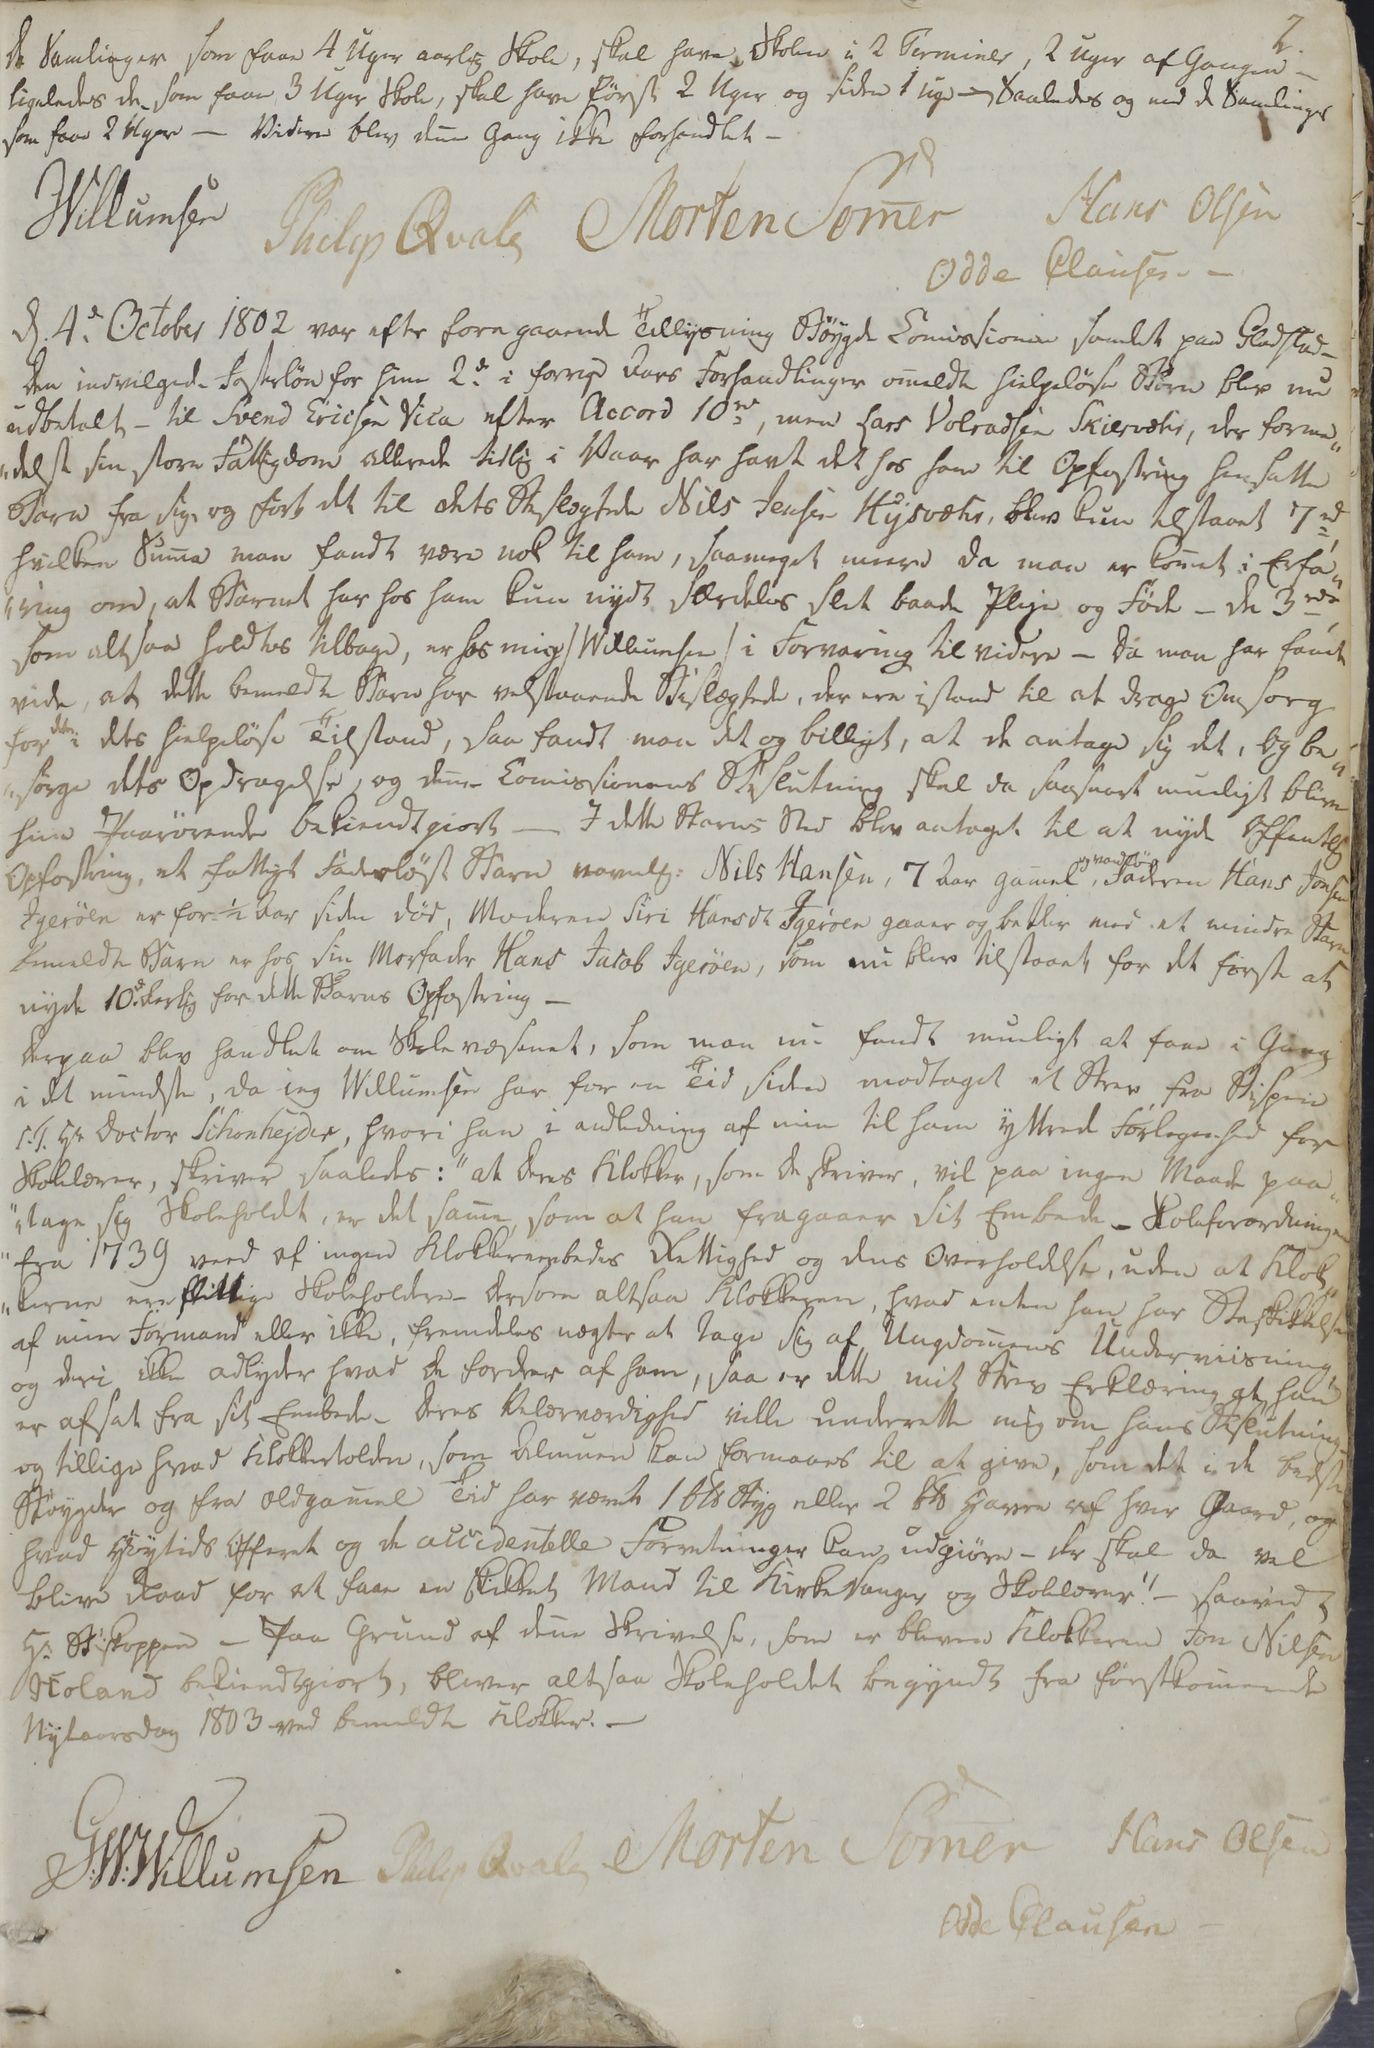 2.
de Samlinger som faae 4 Uger aarlig Skole, skal have Skolen i 2 Terminer, 2 Uger af Gangen –
ligeledes de som faae 3 Uger Skole, skal have først 2 Uger og siden 1 uge – Saaledes og med de Samlinger
som faae 2 Uger – Videre blev denne Gang ikke forhandlet –
Willumsen Philip Qvale Morten Somer Hans Olsen
Odde Clausen –
D. 4de October 1802 var efter foregaaende Tillysning Bøygde Comissionen samlet paa Gladstad –
Den indvilgede Fosterløn for hine 2de i forrige Aars Forhandlinger ommeldte hielpeløse Børn blev nu
udbetalt – til Svend Ericsen Vica efter Accord 10rd, men Lars Volradsen Skiervær, der forme„
„delst sin store Fattigdom allerede tidlig i Vaar har havt det hos ham til Opfostring hensatte
Barn fra sig, og ført det til dets Beslægtede Nils Jensen Hysvær, blev kun tilstaaet 7rd,
hvilken Summa man fandt være nok til ham, saameget meere da man er kommet i Erfa„
„ring om, at Barnet har hos ham kun nydt særdeles slet baade Pleje og Føde – de 3rdr,
som altsaa holdtes tilbage, er hos mig /Willumsen/ i Forvaring til videre – Da man har faaet
vide, at dette bemeldte Barn har velstaaende Beslægtede, der ere istand til at drage Omsorg
for det i dets hielpeløse Tilstand, saa fandt man det og billigt, at de antage sig det, og be„
„sørge dets Opdragelse, og denne Comissionens Beslutning skal da saasnart mueligt blive
hine Paarørende bekiendtgiort – I dette Barns Sted blev antaget til at nyde Offentlig
Opfostring, et fattigt Faderløst Barn navnlig: Nils Hansen, 7 Aar gammel, Faderen Hans Jonsen
Igerøen er for ½ Aar siden død, Moderen Siri Hansdt Igerøen gaaer og betler med et mindre Barn
bemeldte Barn er hos sin Morfader Hans Jacob Igerøen, som nu blev tilstaaet for det første at
nyde 10rd aarlig for dette Barns Opfostring –
Derpaa blev handlet om Skolevæsenet, som man nu fandt mueligt at faae i Gang
i det mindste, da jeg Willumsen har for en Tid siden modtaget et Brev fra Bispen
S.T. Hr Doctor Schonhejder, hvori han i anledning af min til ham yttrede Forlegenhed for
Skolelærer, skriver saaledes: "at deres Klokker, som de skriver, vil paa ingen Maade paa„
„tage sig Skoleholdt, er det samme, som at han fragaaer sit Embede – Skoleforordningen
„fra 1739 veed af ingen Klokkerembedes Rettighed og dens Overholdelse, uden at Klok„
„kerne ere flittige Skoleholdere – dersom altsaa Klokkeren, hvad enten han har Beskikkelse
af min Formand eller ikke, fremdeles nægter at tage sig af Ungdommens Underviisning
og deri ikke adlyder hvad De fordrer af ham, saa er dette mit Brev Erklæring at han
er afsat fra sit Embede – Deres Velærværdighed ville underrette mig om hans Beslutning –
og tillige hvad Klokkertolden, som Almuen kan formaaes til at give, som det i de bedste
Bøygder og fra Oldgammel Tid har været 1 Byg eller 2 Havre af hver Gaard, og
hvad Høytids Offeret og de accidentelle Forretninger kan udgiøre – der skal da vel
blive Raad for at faae en skikket Mand til Kirkesanger og Skolelærer" – saavidt
Hr. Biskoppen – Paa Grund af denne Skrivelse, som er bleven Klokkeren Jon Nilsen
Holand bekiendtgiort, bliver altsaa Skoleholdet begyndt fra førstkommende
Nytaarsdag 1803 ved bemeldte Klokker. –
G.W. Willumsen Philip Qvale Morten Somer Hans Olsen
Odde Clausen –